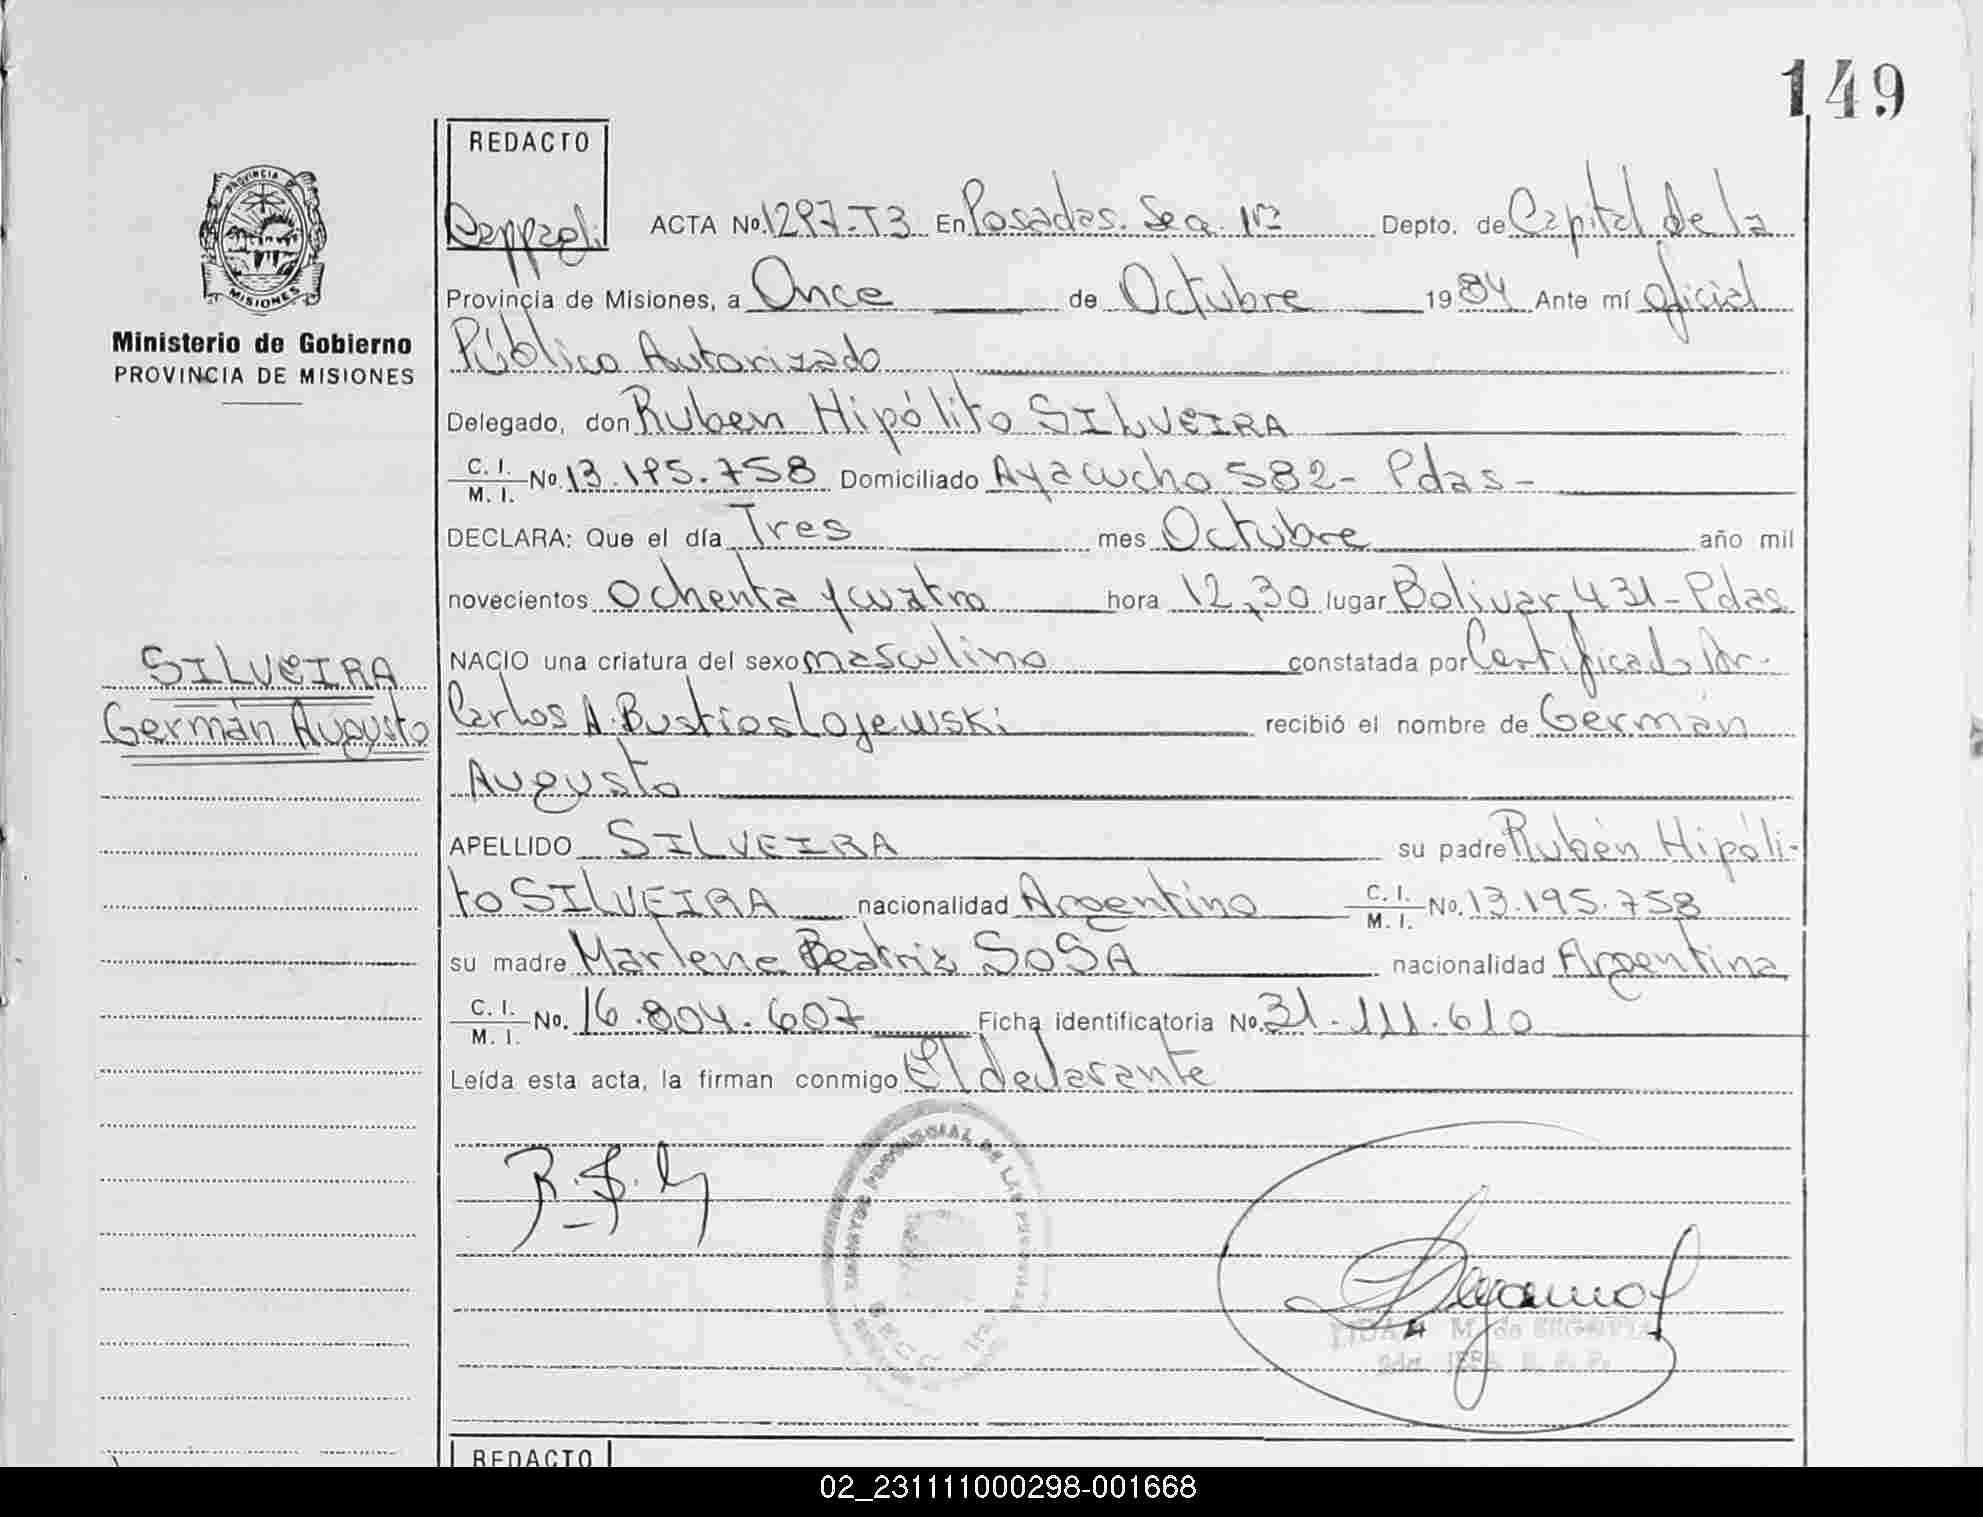 149
REDACTO
PROVINCIA D
MISIONES
Ministerio de Gobierno
PROVINCIA DE MISIONES
ACTA No. 1297-T3 En Posadas. Sec. 1ra Depto. de Capital de la
Provincia de Misiones, a Once de Octubre 1984 Ante mí oficial
Público Autorizado
Delegado, don Ruben Hipólito SILVEIRA
C. I. / M. I. No. 13.195.758 Domiciliado Ayacucho 582- Pdas-
DECLARA: Que el día Tres mes Octubre año mil
novecientos Ochenta y cuatro hora 12,30 lugar Bolivar 431-Pdas
NACIO una criatura del sexo masculino constatada por Certificado Dr.
SILVEIRA
Germán Augusto
Carlos A. Bustioslojewski recibió el nombre de Germán
Augusto
APELLIDO SILVEIRA su padre Rubén Hipóli-
to SILVEIRA nacionalidad Argentino C. I. / M. I. No. 13.195.758
su madre Marlene Beatriz SOSA nacionalidad Argentina
C. I. / M. I. No. 16.804.607 Ficha identificatoria No. 31-111.610
Leída esta acta, la firman conmigo El declarante
PROVINCIAL DE LAS PERSONAS
M. de SEGOVIA
REDACTO
02_231111000298-001668